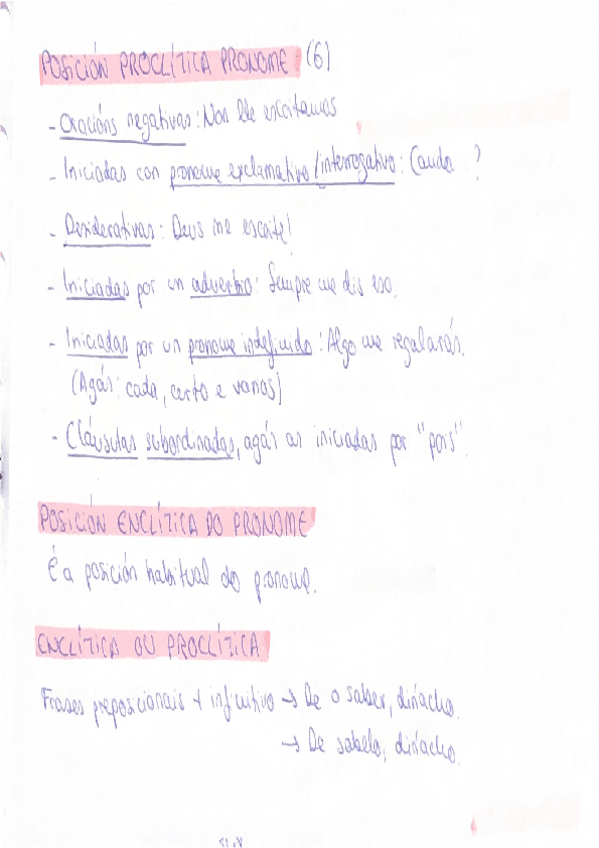 POSICIÓN PROCLÍTICA PRONOME: (6)
- Oracións negativas: Non lle escoitamos
- Iniciadas con pronome exclamativo/interrogativo: Canda ?
- Desiderativas: Deus me escoite!
- Iniciadas por un adverbio: Sempre me dis eso.
- Iniciadas por un pronome indefinido: Algo me regalarás.
(Agás: cada, certo e varios)
- Cláusulas subordinadas, agás as iniciadas por "pois".
POSICIÓN ENCLÍTICA DO PRONOME
É a posición habitual do pronome.
ENCLÍTICA OU PROCLÍTICA
Frases preposicionais + infinitivo → De o saber, diríacho.
→ De sabelo, diríacho.